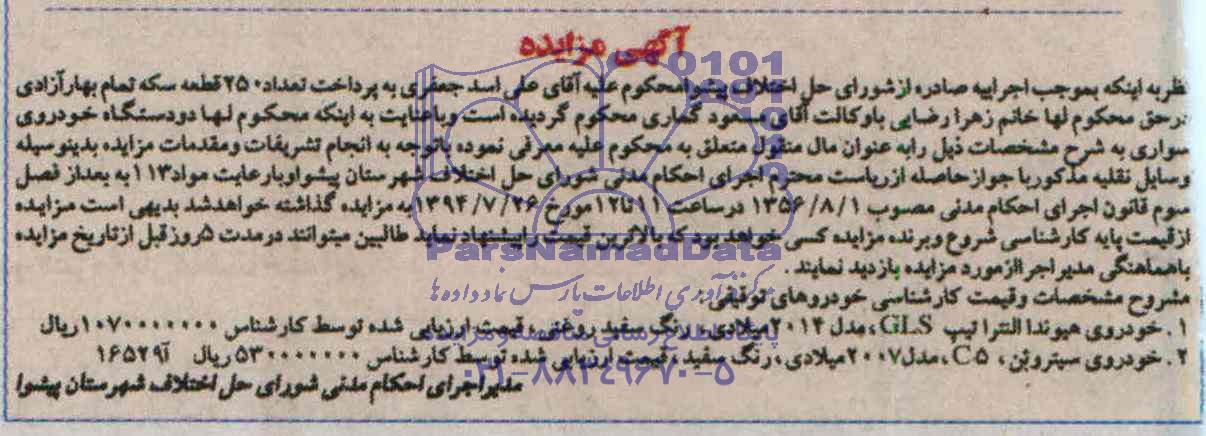 آگهی مزایده
نظربه اینکه بموجب اجراییه صادره ازشورای حل اختلاف پیشوامحکوم علیه آقای علی اسد جعفری به پرداخت تعداد۲۵۰قطعه سکه تمام بهارآزادی
درحق محکوم لها خانم زهرا رضایی باوکالت آقای مسعود گماری محکوم گردیده است وباعنایت به اینکه محکوم لها دودستگاه خودروی
سواری به شرح مشخصات ذیل رابه عنوان مال منقول متعلق به محکوم علیه معرفی نموده باتوجه به انجام تشریفات ومقدمات مزایده بدینوسیله
وسایل نقلیه مذکوربا جوازحاصله ازریاست محترم اجرای احکام مدنی شورای حل اختلاف شهرستان پیشواوبارعایت مواد۱۱۳به بعداز فصل
سوم قانون اجرای احکام مدنی مصوب ۱۳۵۶/۸/۱ درساعت ۱۱تا۱۲مورخ ۱۳۹۴/۷/۲۶به مزایده گذاشته خواهدشد بدیهی است مزایده
ازقیمت پایه کارشناسی شروع وبرنده مزایده کسی خواهدبود که بالاترین قیمت راپیشنهادنماید طالبین میتوانند درمدت ۵روزقبل ازتاریخ مزایده
باهماهنگی مدیراجراازمورد مزایده بازدید نمایند .
مشروح مشخصات وقیمت کارشناسی خودروهای توقیفی :
۱ . خودروی هیوندا النترا تیپ GLS ،مدل ۲۰۱۴میلادی ، رنگ سفید روغنی ، قیمت ارزیابی شده توسط کارشناس ۱۰۷۰۰۰۰۰۰۰ریال
۲ . خودروی سیتروئن، C5 ،مدل۲۰۰۷میلادی،رنگ سفید ،قیمت ارزیابی شده توسط کارشناس ۵۳۰۰۰۰۰۰۰ریال آ۱۶۵۲۹
مدیراجرای احکام مدنی شورای حل اختلاف شهرستان پیشوا
0101
ParsNamadData
مرکز فرآوری اطلاعات پارس نماد داده ها
پایگاه اطلاع رسانی مناقصه و مزایده
۰۲۱-۸۸۳۴۹۶۷۰-۵